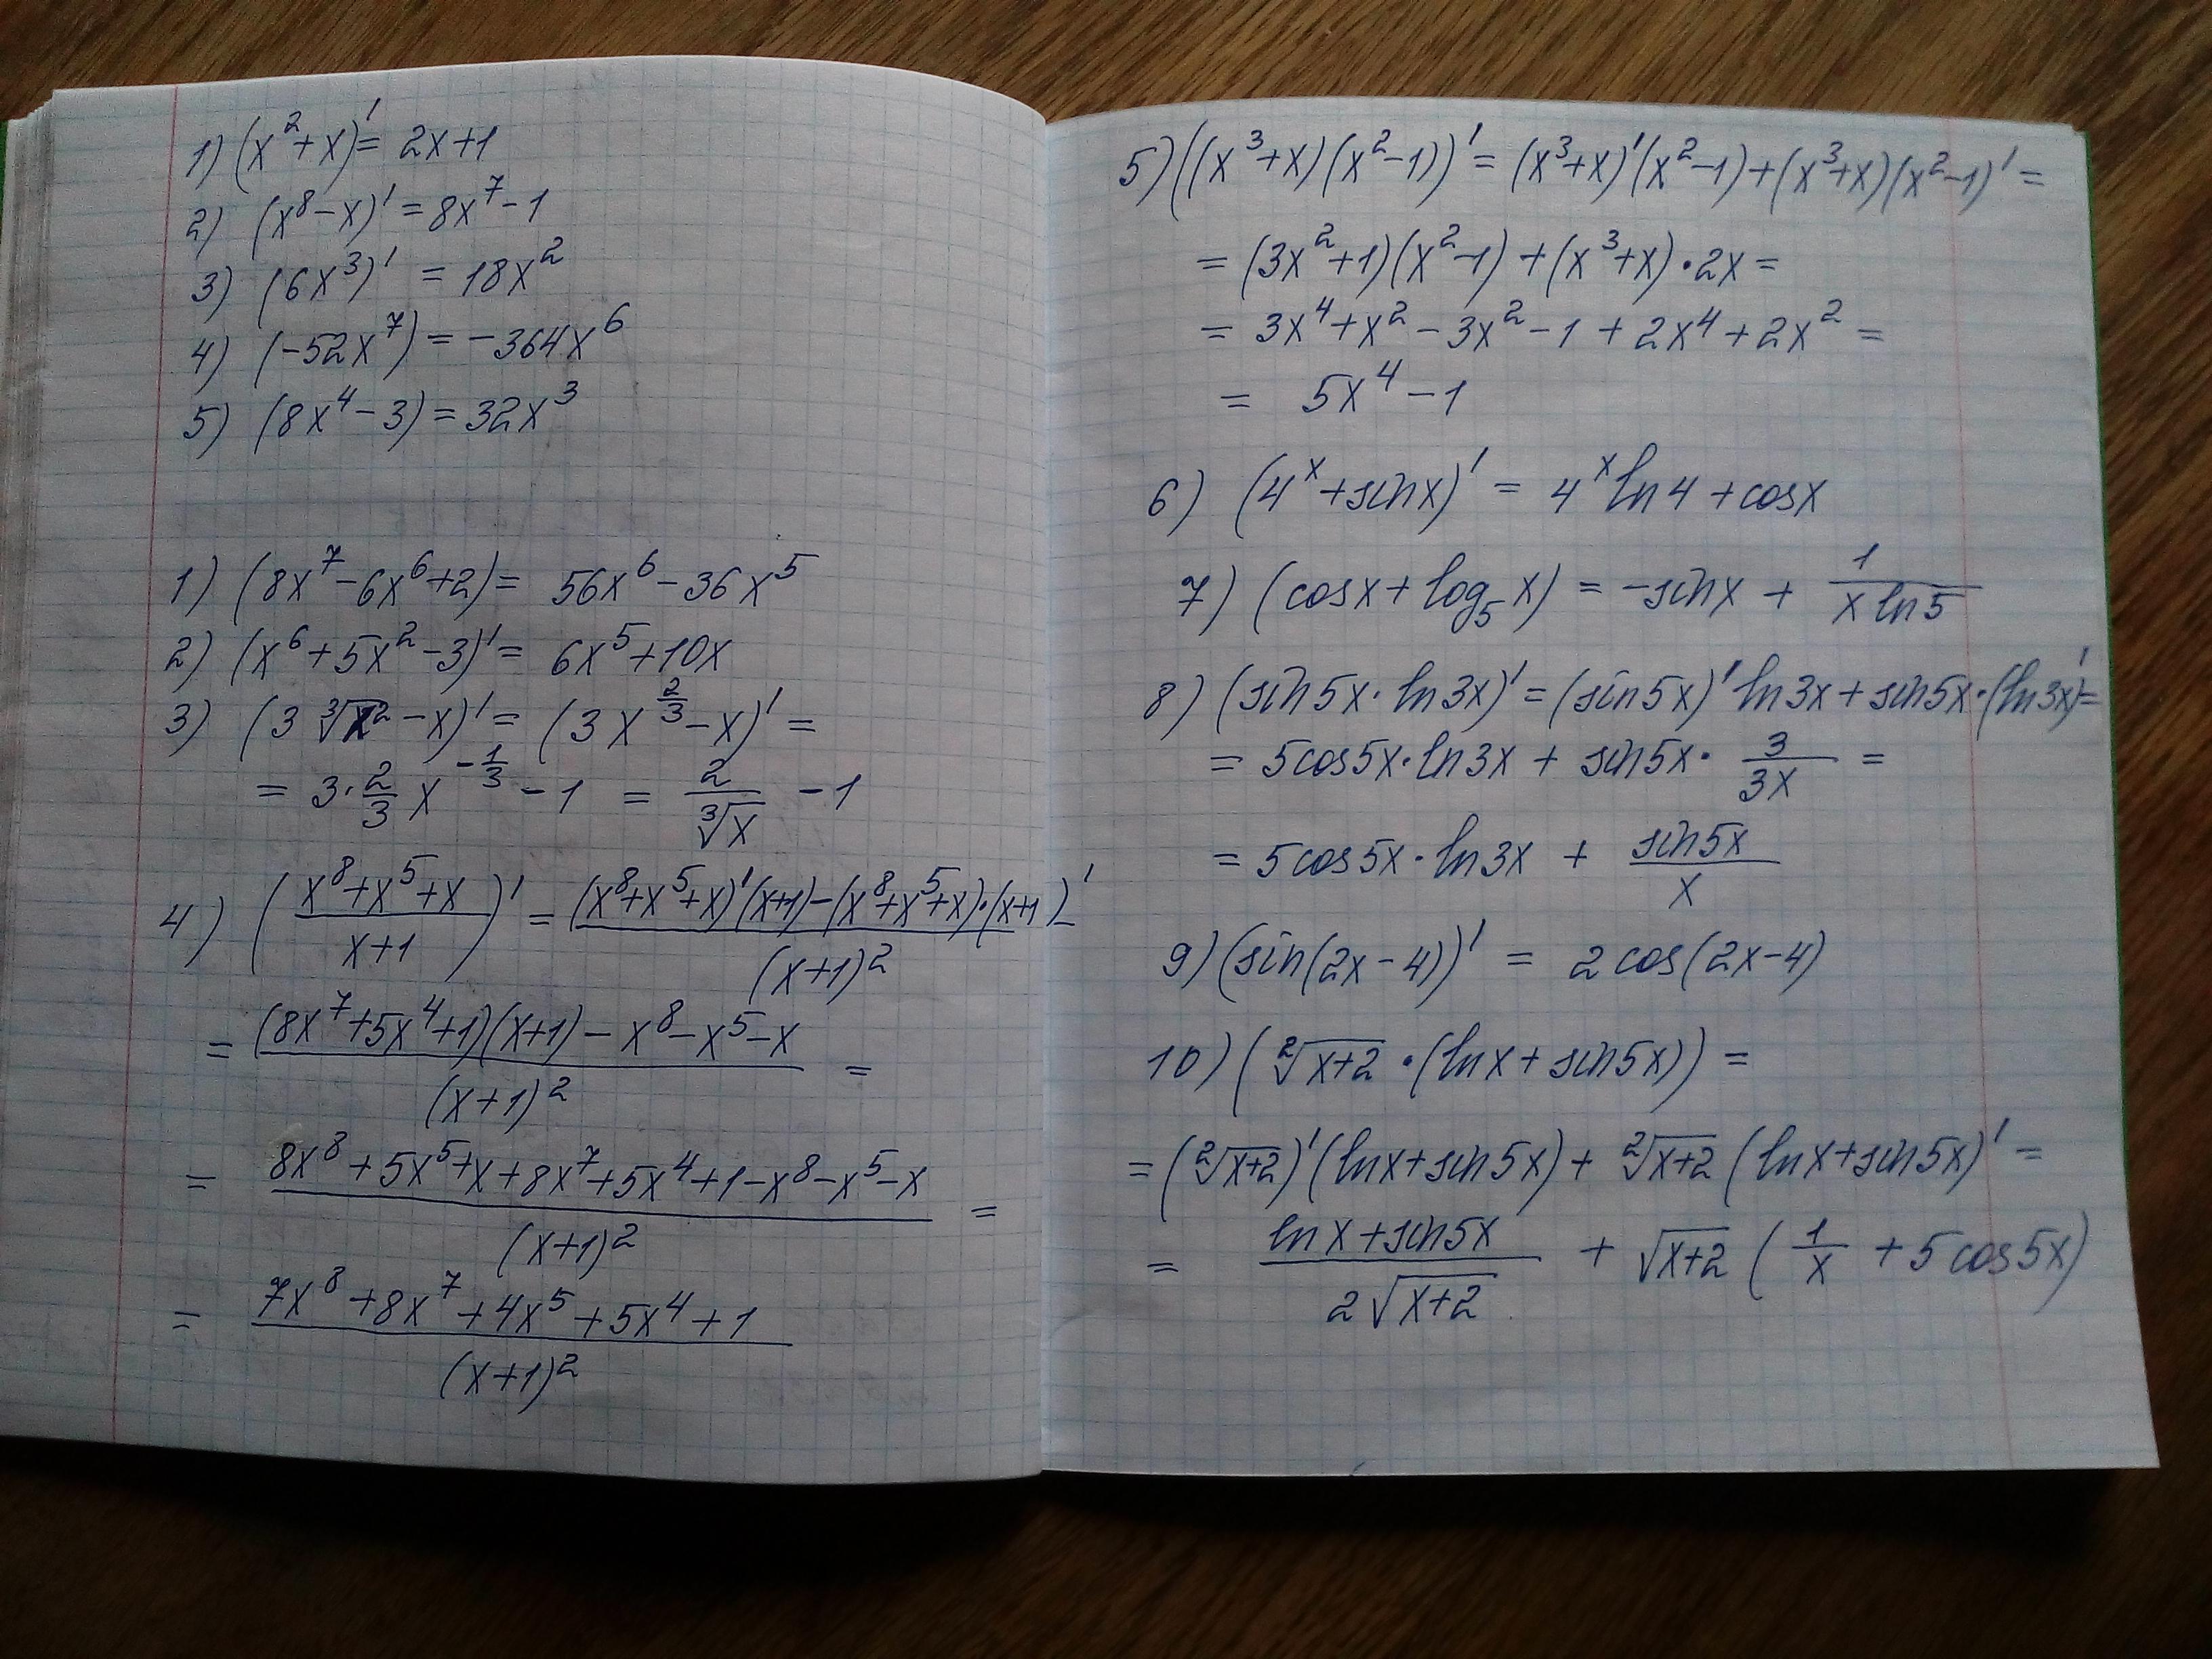 1) (x²+x)' = 2x+1
2) (x⁸-x)' = 8x⁷-1
3) (6x³)' = 18x²
4) (-52x⁷) = -364x⁶
5) (8x⁴-3) = 32x³
1) (8x⁷-6x⁶+2) = 56x⁶-36x⁵
2) (x⁶+5x²-3)' = 6x⁵+10x
3) (3∛x²-x)' = (3x^(2/3)-x)' =
= 3·2/3 x^(-1/3) -1 = 2/∛x -1
4) ((x⁸+x⁵+x)/(x+1))' = ((x⁸+x⁵+x)'(x+1)-(x⁸+x⁵+x)·(x+1)')/(x+1)²
= ((8x⁷+5x⁴+1)(x+1)-x⁸-x⁵-x)/(x+1)² =
= (8x⁸+5x⁵+x+8x⁷+5x⁴+1-x⁸-x⁵-x)/(x+1)² =
= (7x⁸+8x⁷+4x⁵+5x⁴+1)/(x+1)²
5) ((x³+x)(x²-1))' = (x³+x)'(x²-1)+(x³+x)(x²-1)' =
= (3x²+1)(x²-1)+(x³+x)·2x =
= 3x⁴+x²-3x²-1+2x⁴+2x² =
= 5x⁴-1
6) (4ˣ+sinx)' = 4ˣln4+cosx
7) (cosx+log₅x) = -sinx + 1/(x ln5)
8) (sin5x·ln3x)' = (sin5x)'ln3x+sin5x·(ln3x)' =
= 5cos5x·ln3x + sin5x·3/(3x) =
= 5cos5x·ln3x + sin5x/x
9) (sin(2x-4))' = 2cos(2x-4)
10) (²√(x+2)·(lnx+sin5x)) =
= (²√(x+2))'(lnx+sin5x)+²√(x+2)(lnx+sin5x)' =
= (lnx+sin5x)/(2√(x+2)) + √(x+2)(1/x+5cos5x)